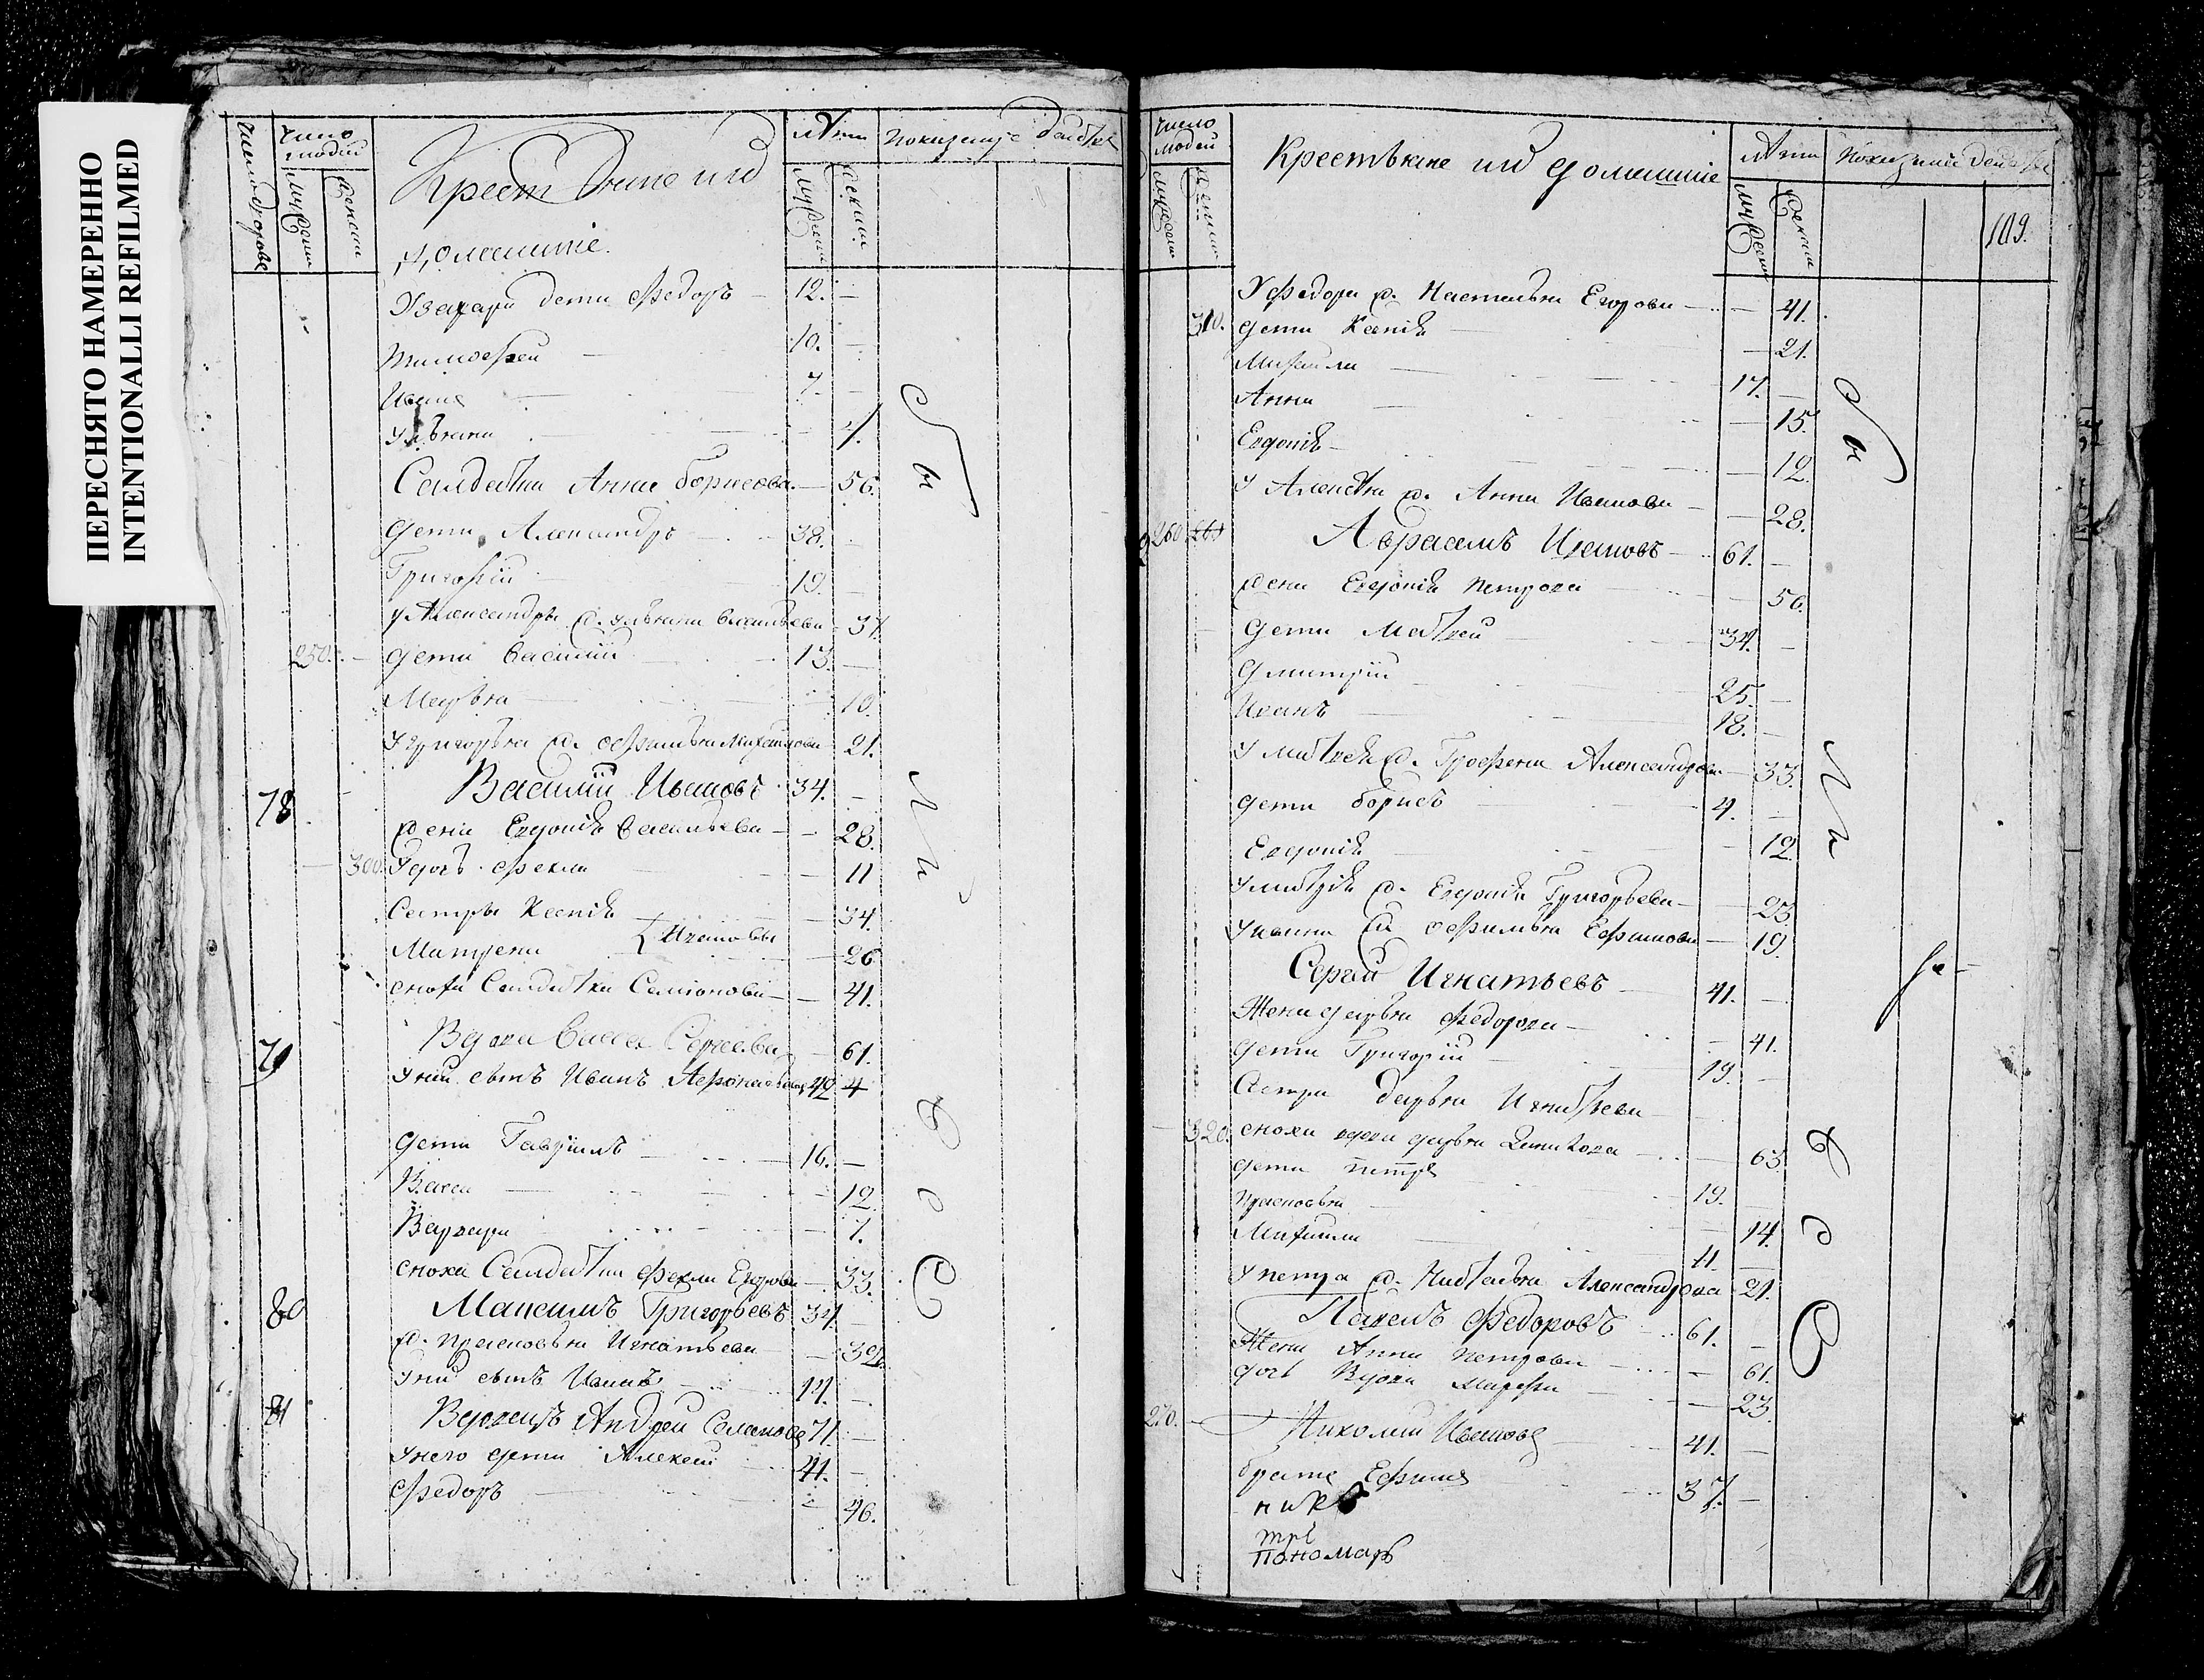 ПЕРЕСНЯТО НАМЕРЕННО
INTENTIONALLI REFILMED
число дворовъ
число людей
мужеска
женска
Крестьяне ихъ
домашніе.
лѣта
мужеска
женска
показаніе действа
Захара дети Федоръ 12.
Тимофей 10.
Иванъ 7.
Ульяна 4.
Салдатка Анна Борисова 56.
дети Александръ 38.
Григорій 19.
у Александра ж. Ульяна Васильева 37.
250. дети Василій 13.
Марья 10.
у Григорья ж. Офимья Михайлова 21.
78 Василій Ивановъ 34.
жена Евдокія Васильева 28.
300. у дочь Фекла 11
Сестры Ксенія 34.
Матрена Ивановы 26
сноха Салдатка Семіонова 41.
79 Вдова Васса Сергеева 61.
у ний сынъ Иванъ Афонасьевъ 42 4
дети Гаврілъ 16.
Васса 12.
Варвара 7.
сноха Салдатка Фекла Егорова 33.
80 Максимъ Григорьевъ 34.
ж. Прасковья Игнатьева 32.
у ний сынъ Иванъ 14.
81 Вдовецъ Андрей Семеновъ 71.
у него дети Алексей 41.
Федоръ 46.
были
у
св.
число людей
мужеска
женска
Крестьяне ихъ домашніе
лѣта
мужеска
женска
показаніе действа
109.
У Федора ж. Настасья Егорова 41.
310. дети Ксенія 21.
Михайла 17.
Анна 15.
Евдокія 12.
у Алексея ж. Анна Иванова 28.
260 261 Абрасимъ Ивановъ 61.
жена Евдокія Петрова 56.
дети Матвей 34.
Дмитрій 25.
Иванъ 18.
у Матвея ж. Трофена Александрова 33.
дети Борисъ 4.
Евдокія 12.
у Митрія ж. Евдокія Григорьева 23.
у Ивана ж. Офимья Ефимова 19.
Сергей Игнатьевъ 41.
Жена Дарья Федорова 41.
дети Григорій 19.
Сестра Дарья Игнатьева
320. сноха вдова Дарья 63.
дети Петръ 19.
Прасковья 14.
Михайла 11.
у Петра ж. Наталья Александрова 21.
Павелъ Федоровъ 61.
Жена Анна Петрова 61.
дочь Вдова Марфа 23.
270. Николай Ивановъ 41.
братъ Ефимъ 37.
пономарь